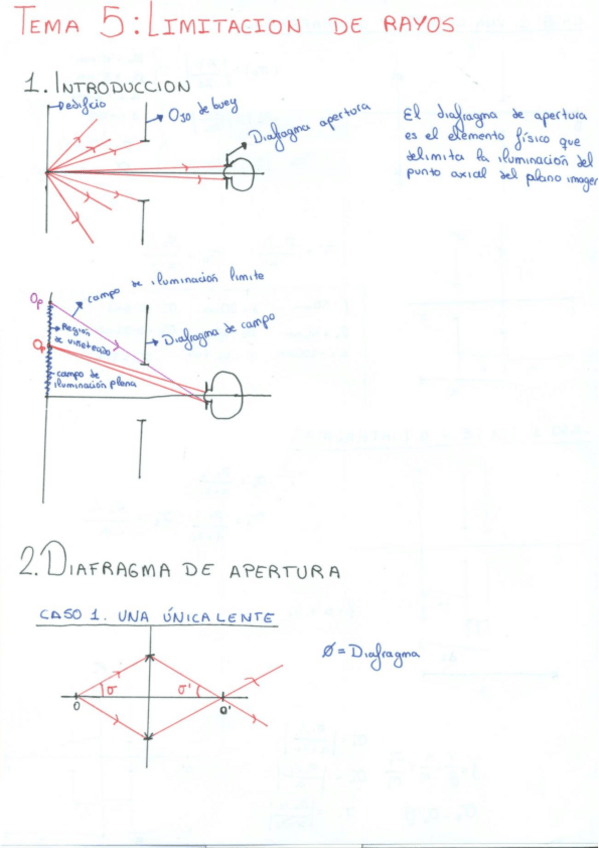 TEMA 5: LIMITACION DE RAYOS
1. INTRODUCCION
edificio
Ojo de buey
Diafragma apertura
El diafragma de apertura
es el elemento físico que
delimita la iluminación del
punto axial del plano imagen
Op
campo de iluminación límite
Región
de viñeteado
Diafragma de campo
campo de
iluminación plena
2. DIAFRAGMA DE APERTURA
CASO 1. UNA ÚNICA LENTE
Ø = Diafragma
σ
σ'
O
O'